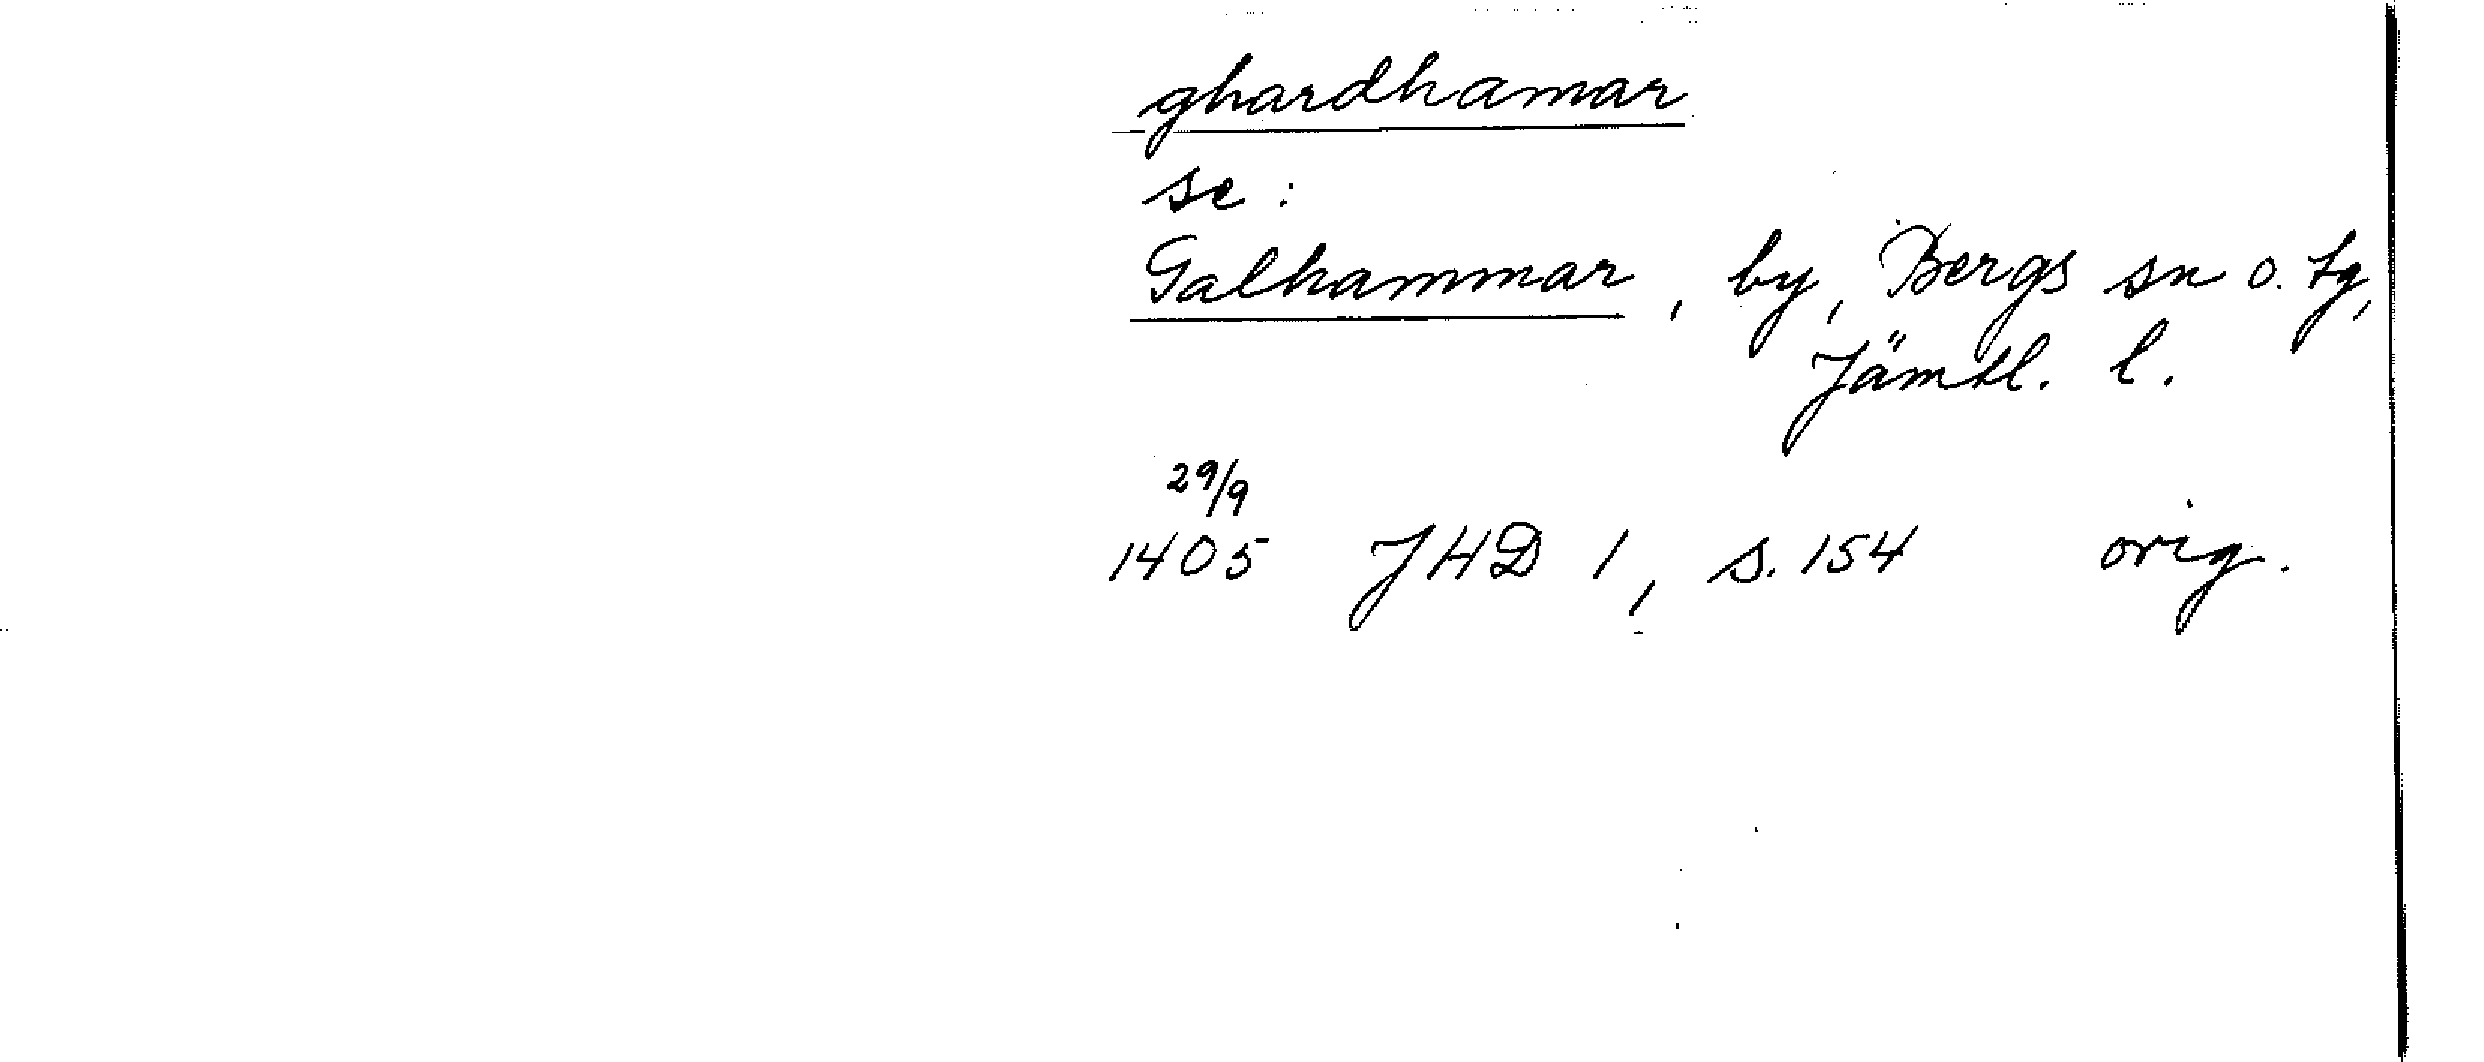 ghardhamar
se:
Galhammar, by, Bergs sn o. tg,
Jämtl. l.
29/9
1405 JHD 1, s. 154 orig.